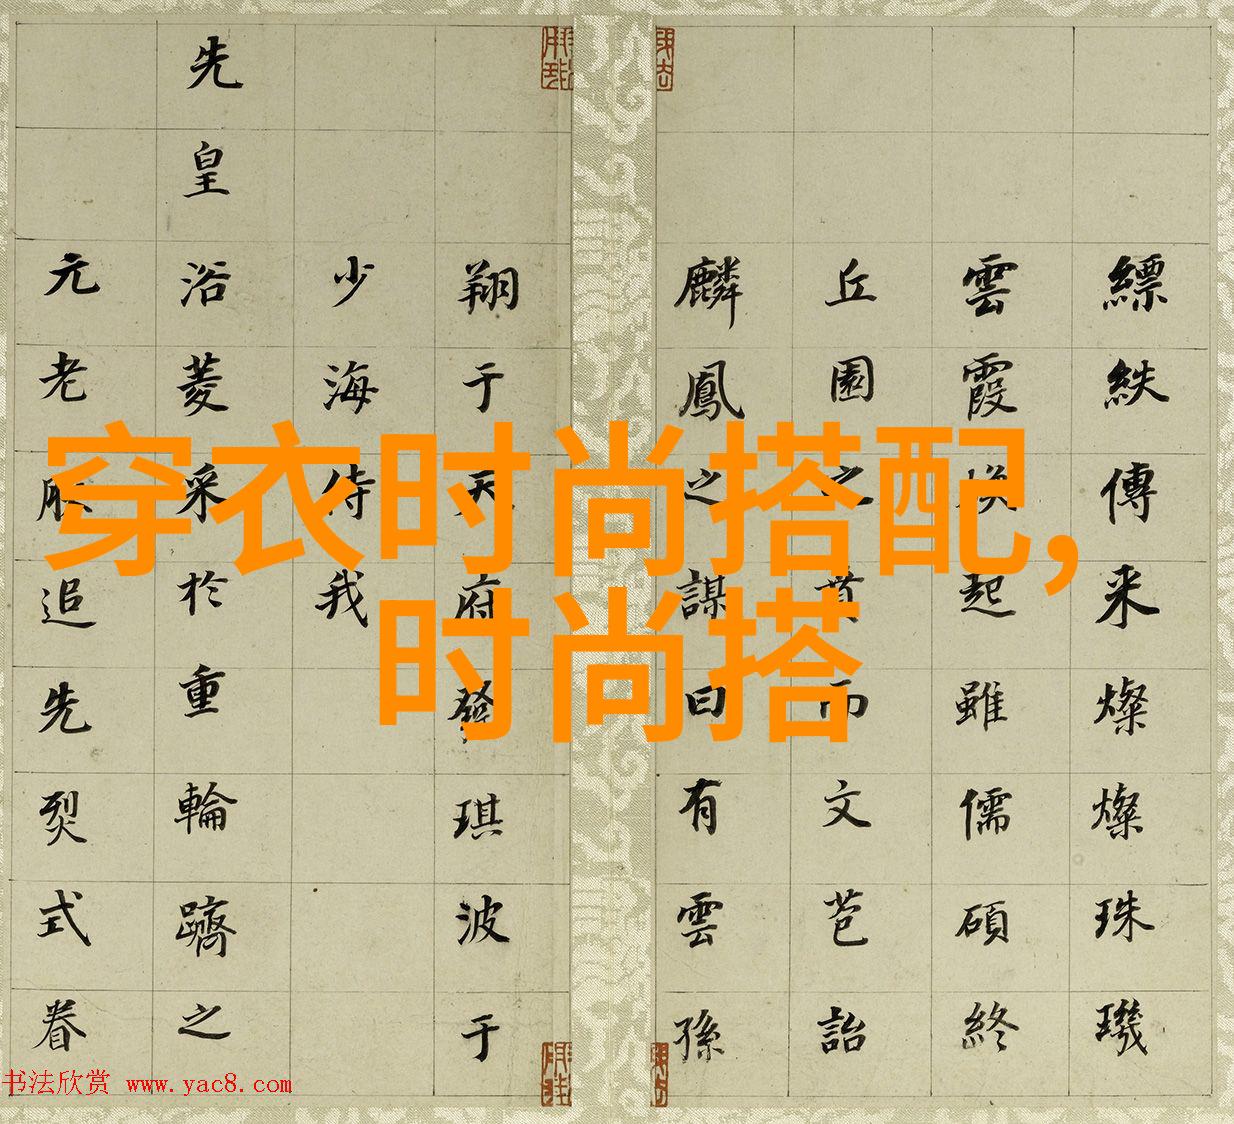 穿衣时尚搭配，
时尚搭
縹紩傳来燦燦珠璣
雲霞煥起雖儒碩終
丘園之賁而文苞詒
麟鳳之謀曰有雲孫
翔于天府發琪波于
少海侍我
先皇浴菱采於重輪躋之
元老追先烈式眷
书法欣赏 www.yac8.com